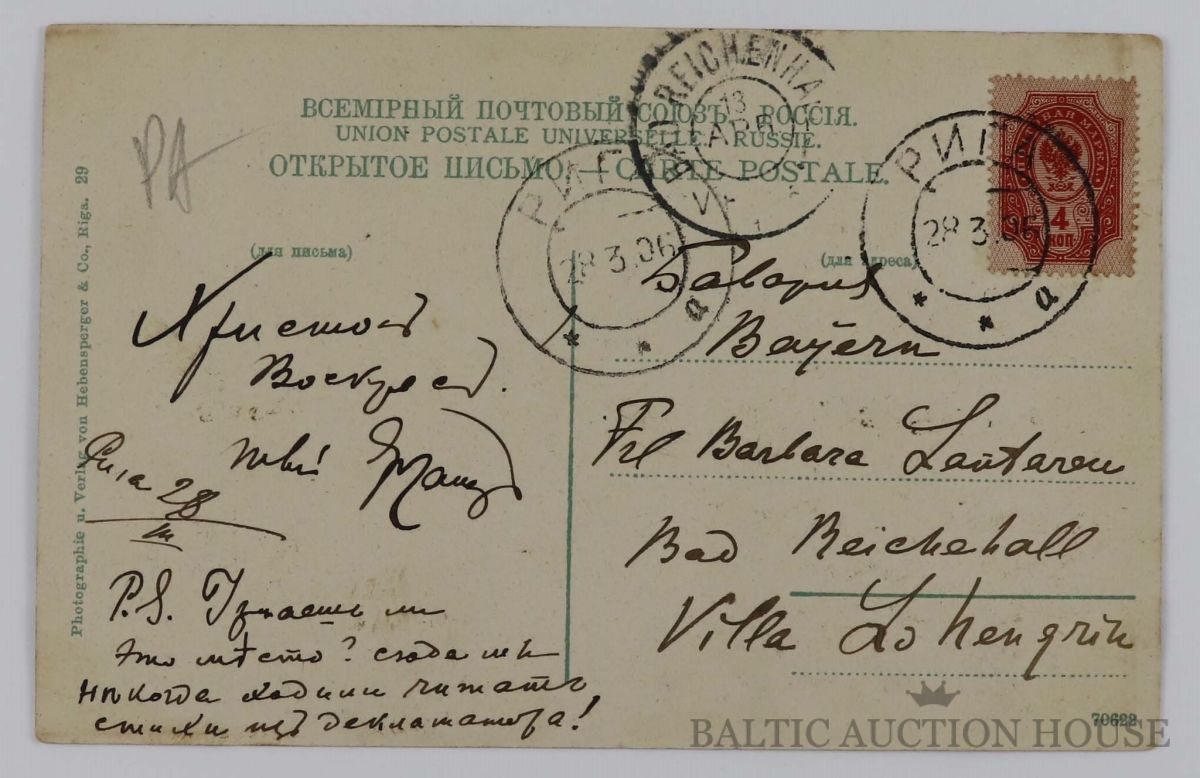 ВСЕМІРНЫЙ ПОЧТОВЫЙ СОЮЗЪ. РОССІЯ.
UNION POSTALE UNIVERSELLE. RUSSIE.
ОТКРЫТОЕ ПИСЬМО. — CARTE POSTALE.
(для письма)
(для адреса)
BAD REICHENHA
13 APR
РИГА
28 3.06
а
РИГА
28 3.06
а
ПОЧТОВАЯ МАРКА
4
КОП
РА
Христосъ
Воскресъ.
Рига 28
III
P.S. Узнаешь ли
это мѣсто? сюда мы
нѣкогда ходили читать
стихи изъ декламатора!
Бавария
Bayern
Frl Barbara
Bad Reichehall
Villa Lohengrin
Photographie u. Verlag von Hebensperger & Co., Riga. 29
70622
BALTIC AUCTION HOUSE